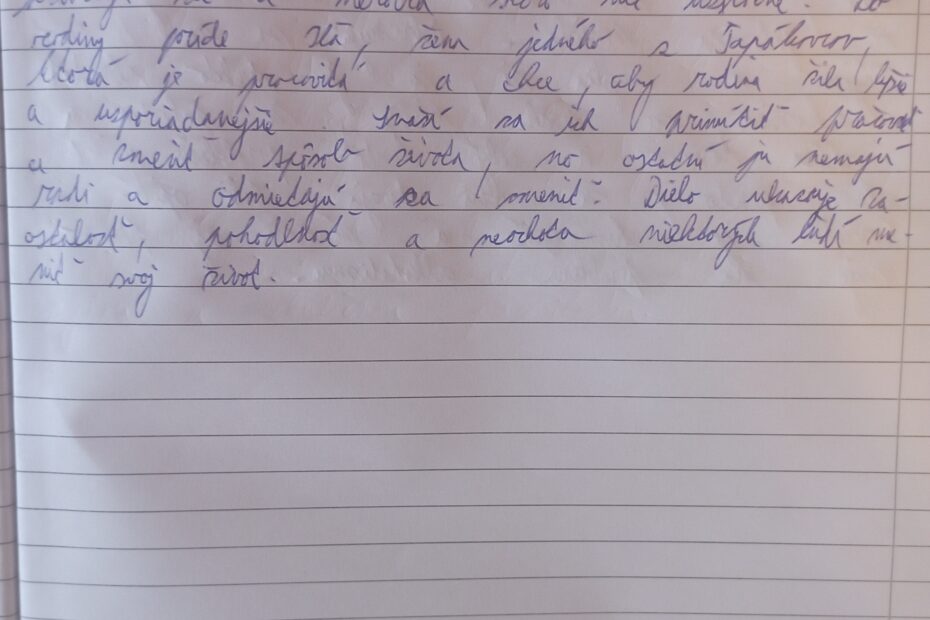 rodiny príde Iľa, žena jedného z Ťapákovcov,
ktorá je pracovitá a chce, aby rodina žila lepšie
a usporiadanejšie. Snaží sa ich prinútiť pracovať
a zmeniť spôsob života, no ostatní ju nemajú
radi a odmietajú sa zmeniť. Dielo ukazuje za-
ostalosť, pohodlnosť a neochota niektorých ľudí me-
niť svoj život.